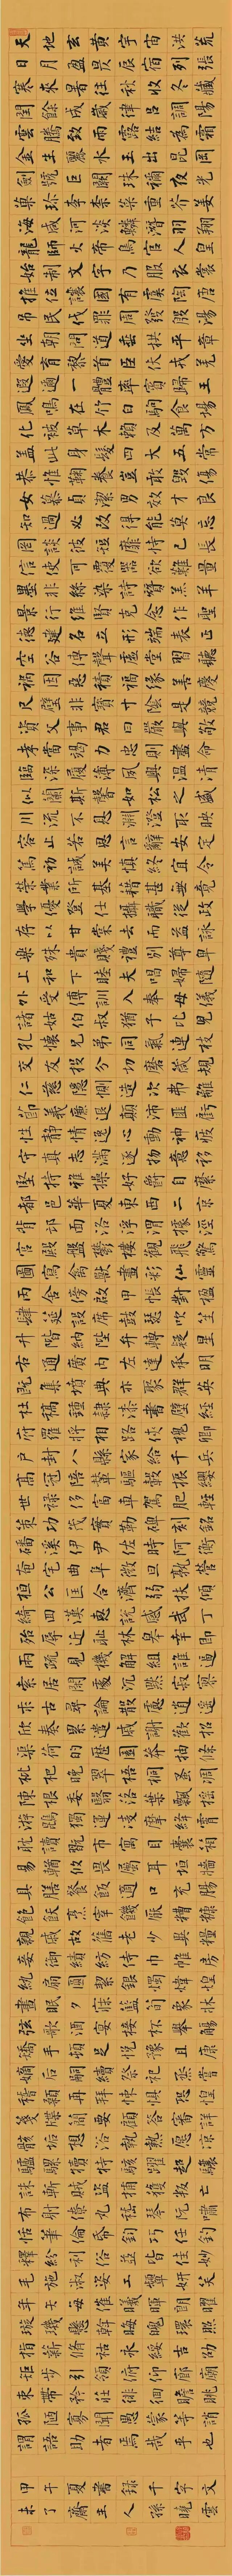 天地玄黃宇宙洪荒
日月盈昃辰宿列張
寒來暑往秋收冬藏
閏餘成歲律呂調陽
雲騰致雨露結為霜
金生麗水玉出崑岡
劍號巨闕珠稱夜光
菓珍李柰菜重芥薑
海鹹河淡鱗潛羽翔
龍師火帝鳥官人皇
始制文字乃服衣裳
推位讓國有虞陶唐
吊民伐罪周發殷湯
坐朝問道垂拱平章
愛育黎首臣伏戎羌
遐邇一體率賓歸王
鳳鳴在竹白駒食場
化被草木賴及萬方
蓋此身髮四大五常
恭惟鞠養豈敢毀傷
女慕貞潔男效才良
知過必改得能莫忘
罔談彼短靡恃己長
信使可覆器欲難量
墨悲絲染詩讚羔羊
景行維賢克念作聖
德建名立形端表正
空谷傳聲虛堂習聽
禍因惡積福緣善慶
尺璧非寶寸陰是競
資父事君曰嚴與敬
孝當竭力忠則盡命
臨深履薄夙興溫清
似蘭斯馨如松之盛
川流不息淵澄取映
容止若思言辭安定
篤初誠美慎終宜令
榮業所基藉甚無竟
學優登仕攝職從政
存以甘棠去而益詠
樂殊貴賤禮別尊卑
上和下睦夫唱婦隨
外受傅訓入奉母儀
諸姑伯叔猶子比兒
孔懷兄弟同氣連枝
交友投分切磨箴規
仁慈隱惻造次弗離
節義廉退顛沛匪虧
性靜情逸心動神疲
守真志滿逐物意移
堅持雅操好爵自縻
都邑華夏東西二京
背邙面洛浮渭據涇
宮殿盤鬱樓觀飛驚
圖寫禽獸畫彩仙靈
丙舍傍啟甲帳對楹
肆筵設席鼓瑟吹笙
升階納陛弁轉疑星
右通廣內左達承明
既集墳典亦聚群英
杜稿鍾隸漆書壁經
府羅將相路俠槐卿
戶封八縣家給千兵
高冠陪輦驅轂振纓
世祿侈富車駕肥輕
策功茂實勒碑刻銘
磻溪伊尹佐時阿衡
奄宅曲阜微旦孰營
桓公匡合濟弱扶傾
綺回漢惠說感武丁
殆辱近恥林皋幸即
兩疏見機解組誰逼
索居閑處沉默寂寥
求古尋論散慮逍遙
欣奏累遣慼謝歡招
渠荷的歷園莽抽條
枇杷晚翠梧桐早凋
陳根委翳落葉飄颻
游鵾獨運凌摩絳霄
耽讀翫市寓目囊箱
易輶攸畏屬耳垣牆
具膳餐飯適口充腸
飽飫烹宰飢厭糟糠
親戚故舊老少異糧
妾御績紡侍巾帷房
紈扇圓潔銀燭煒煌
晝眠夕寐藍筍象床
弦歌酒宴接杯舉觴
矯手頓足悅豫且康
嫡後嗣續祭祀烝嘗
稽顙再拜悚懼恐惶
箋牒簡要顧答審詳
骸垢想浴執熱願涼
驢騾犢特駭躍超驤
誅斬賊盜捕獲叛亡
布射僚丸嵇琴阮嘯
恬筆倫紙鈞巧任釣
釋紛利俗並皆佳妙
毛施淑姿工顰妍笑
年矢每催曦暉朗曜
璇璣懸斡晦魄環照
指薪脩祜永綏吉劭
矩步引領俯仰廊廟
束帶矜莊徘徊瞻眺
孤陋寡聞愚蒙等誚
謂語助者焉哉乎也
甲午夏書錄千字文
未了齋主人孫曉雲